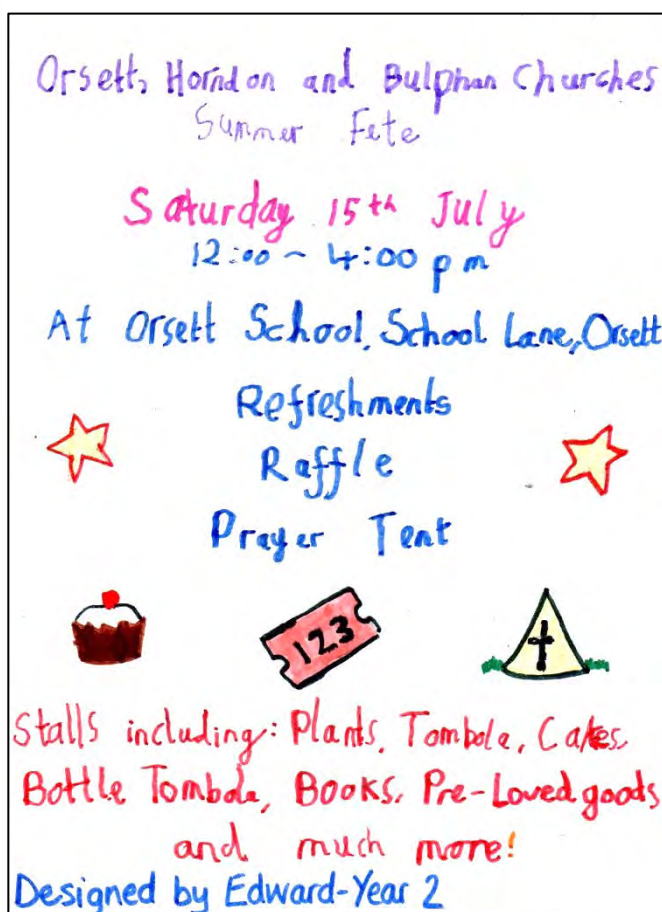 Orsett, Horndon and Bulphan Churches
Summer Fete
Saturday 15th July
12:00 ~ 4:00 pm
At Orsett School, School Lane, Orsett
Refreshments
Raffle
Prayer Tent
123
Stalls including: Plants, Tombola, Cakes,
Bottle Tombola, Books, Pre-Loved goods
and much more!
Designed by Edward-Year 2